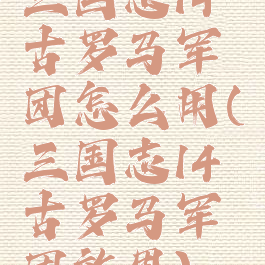 三国志14
古罗马军
团怎么用(
三国志14
古罗马军
团效果)